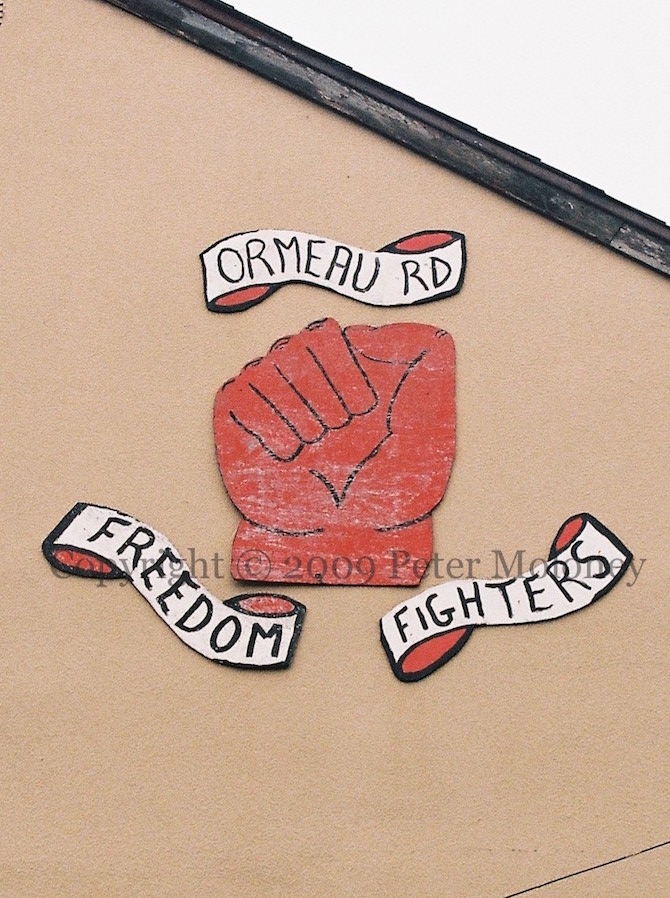 ORMEAU RD
FREEDOM
FIGHTERS
Copyright © 2009 Peter Moloney